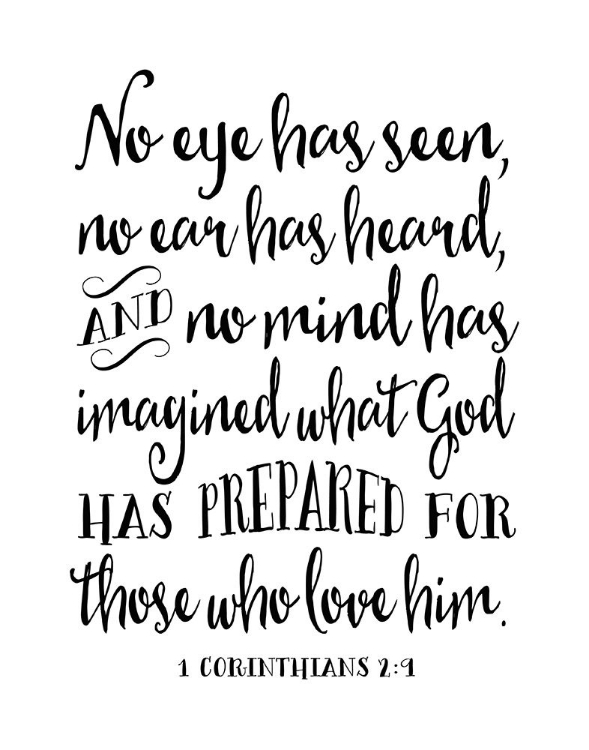 No eye has seen,
no ear has heard,
AND no mind has
imagined what God
HAS PREPARED FOR
those who love him.
1 CORINTHIANS 2:9